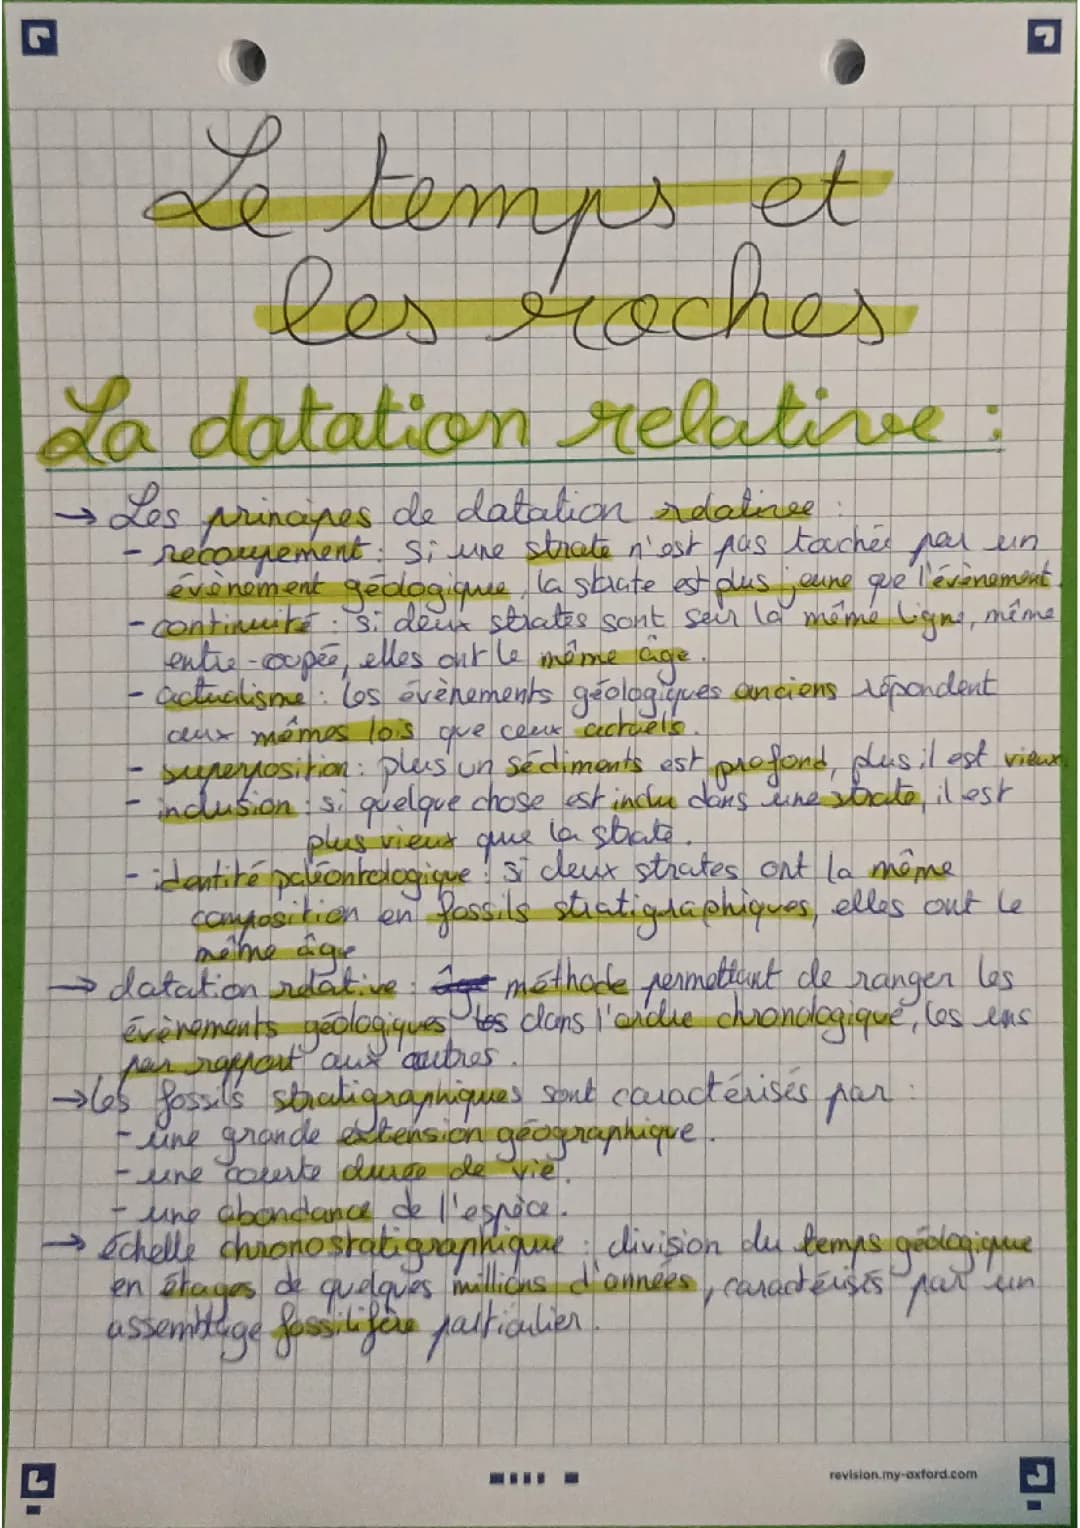 Le temps et
les roches
La datation relative :
→ Les principes de datation relative :
- recoupement : Si une strate n'est pas touchée par un
évènement géologique, la strate est plus jeune que l'évènement.
- continuité : si deux strates sont sur la même ligne, même
entre-coupée, elles ont le même âge.
- actualisme : les évènements géologiques anciens répondent
aux mêmes lois que ceux actuels.
- superposition : plus un sédiments est profond, plus il est vieux.
- inclusion : si quelque chose est inclu dans une strate, il est
plus vieux que la strate.
- identité paléontologique : si deux strates ont la même
composition en fossils stratigraphiques, elles ont le
même âge
→ datation relative : âge méthode permettant de ranger les
évènements géologiques les dans l'ordre chronologique, les uns
par rapport aux autres.
→ Les fossils stratigraphiques sont caractérisés par :
- une grande extension géographique.
- une courte durée de vie.
- une abondance de l'espèce.
→ échelle chronostratigraphique : division du temps géologique
en étages de quelques millions d'années, caractérisés par un
assemblage fossilifère particulier.
revision.my-oxford.com